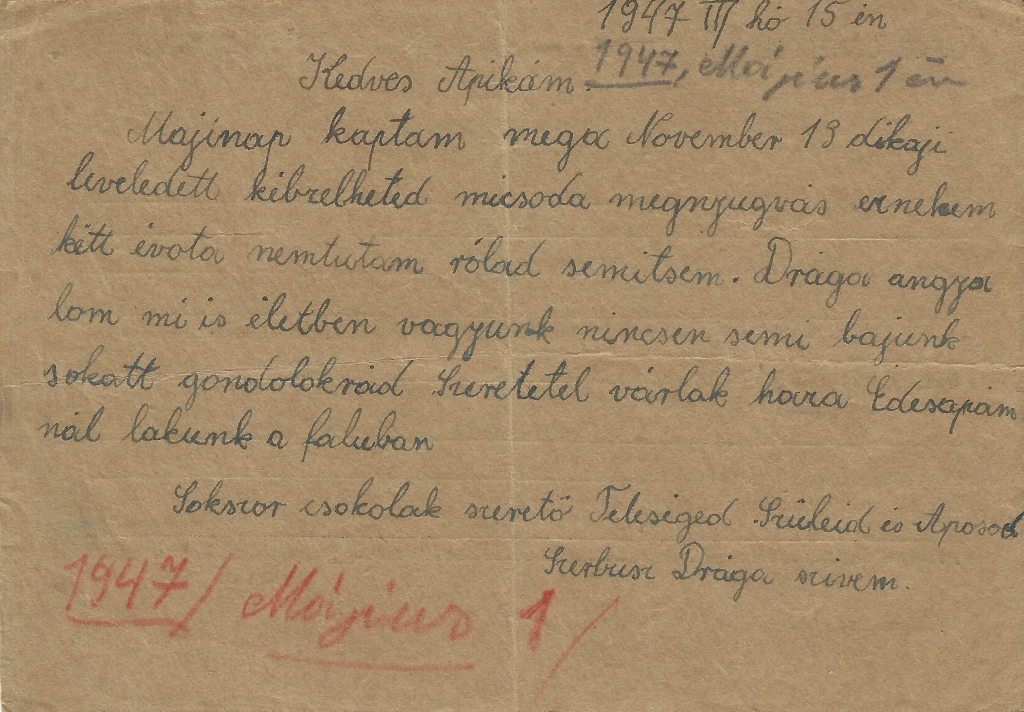 1947 III hó 15 én
1947, Május 1 én
Kedves Apikám.
Majinap kaptam mega November 13 dikaji
leveledett kibzelheted micsoda megnyugvás eznekem
kétt évota nemtutam rólad semitsem. Drága angya
lom mi is életben vagyunk nincsen semi bajunk
sokatt gondolokrád Szeretetel várlak haza Édesapám
nál lakunk a faluban
Sokszor csokolak szerető Feleséged Szüleid és Aposod
Szerbusz Drága szivem.
1947/ Május 1/